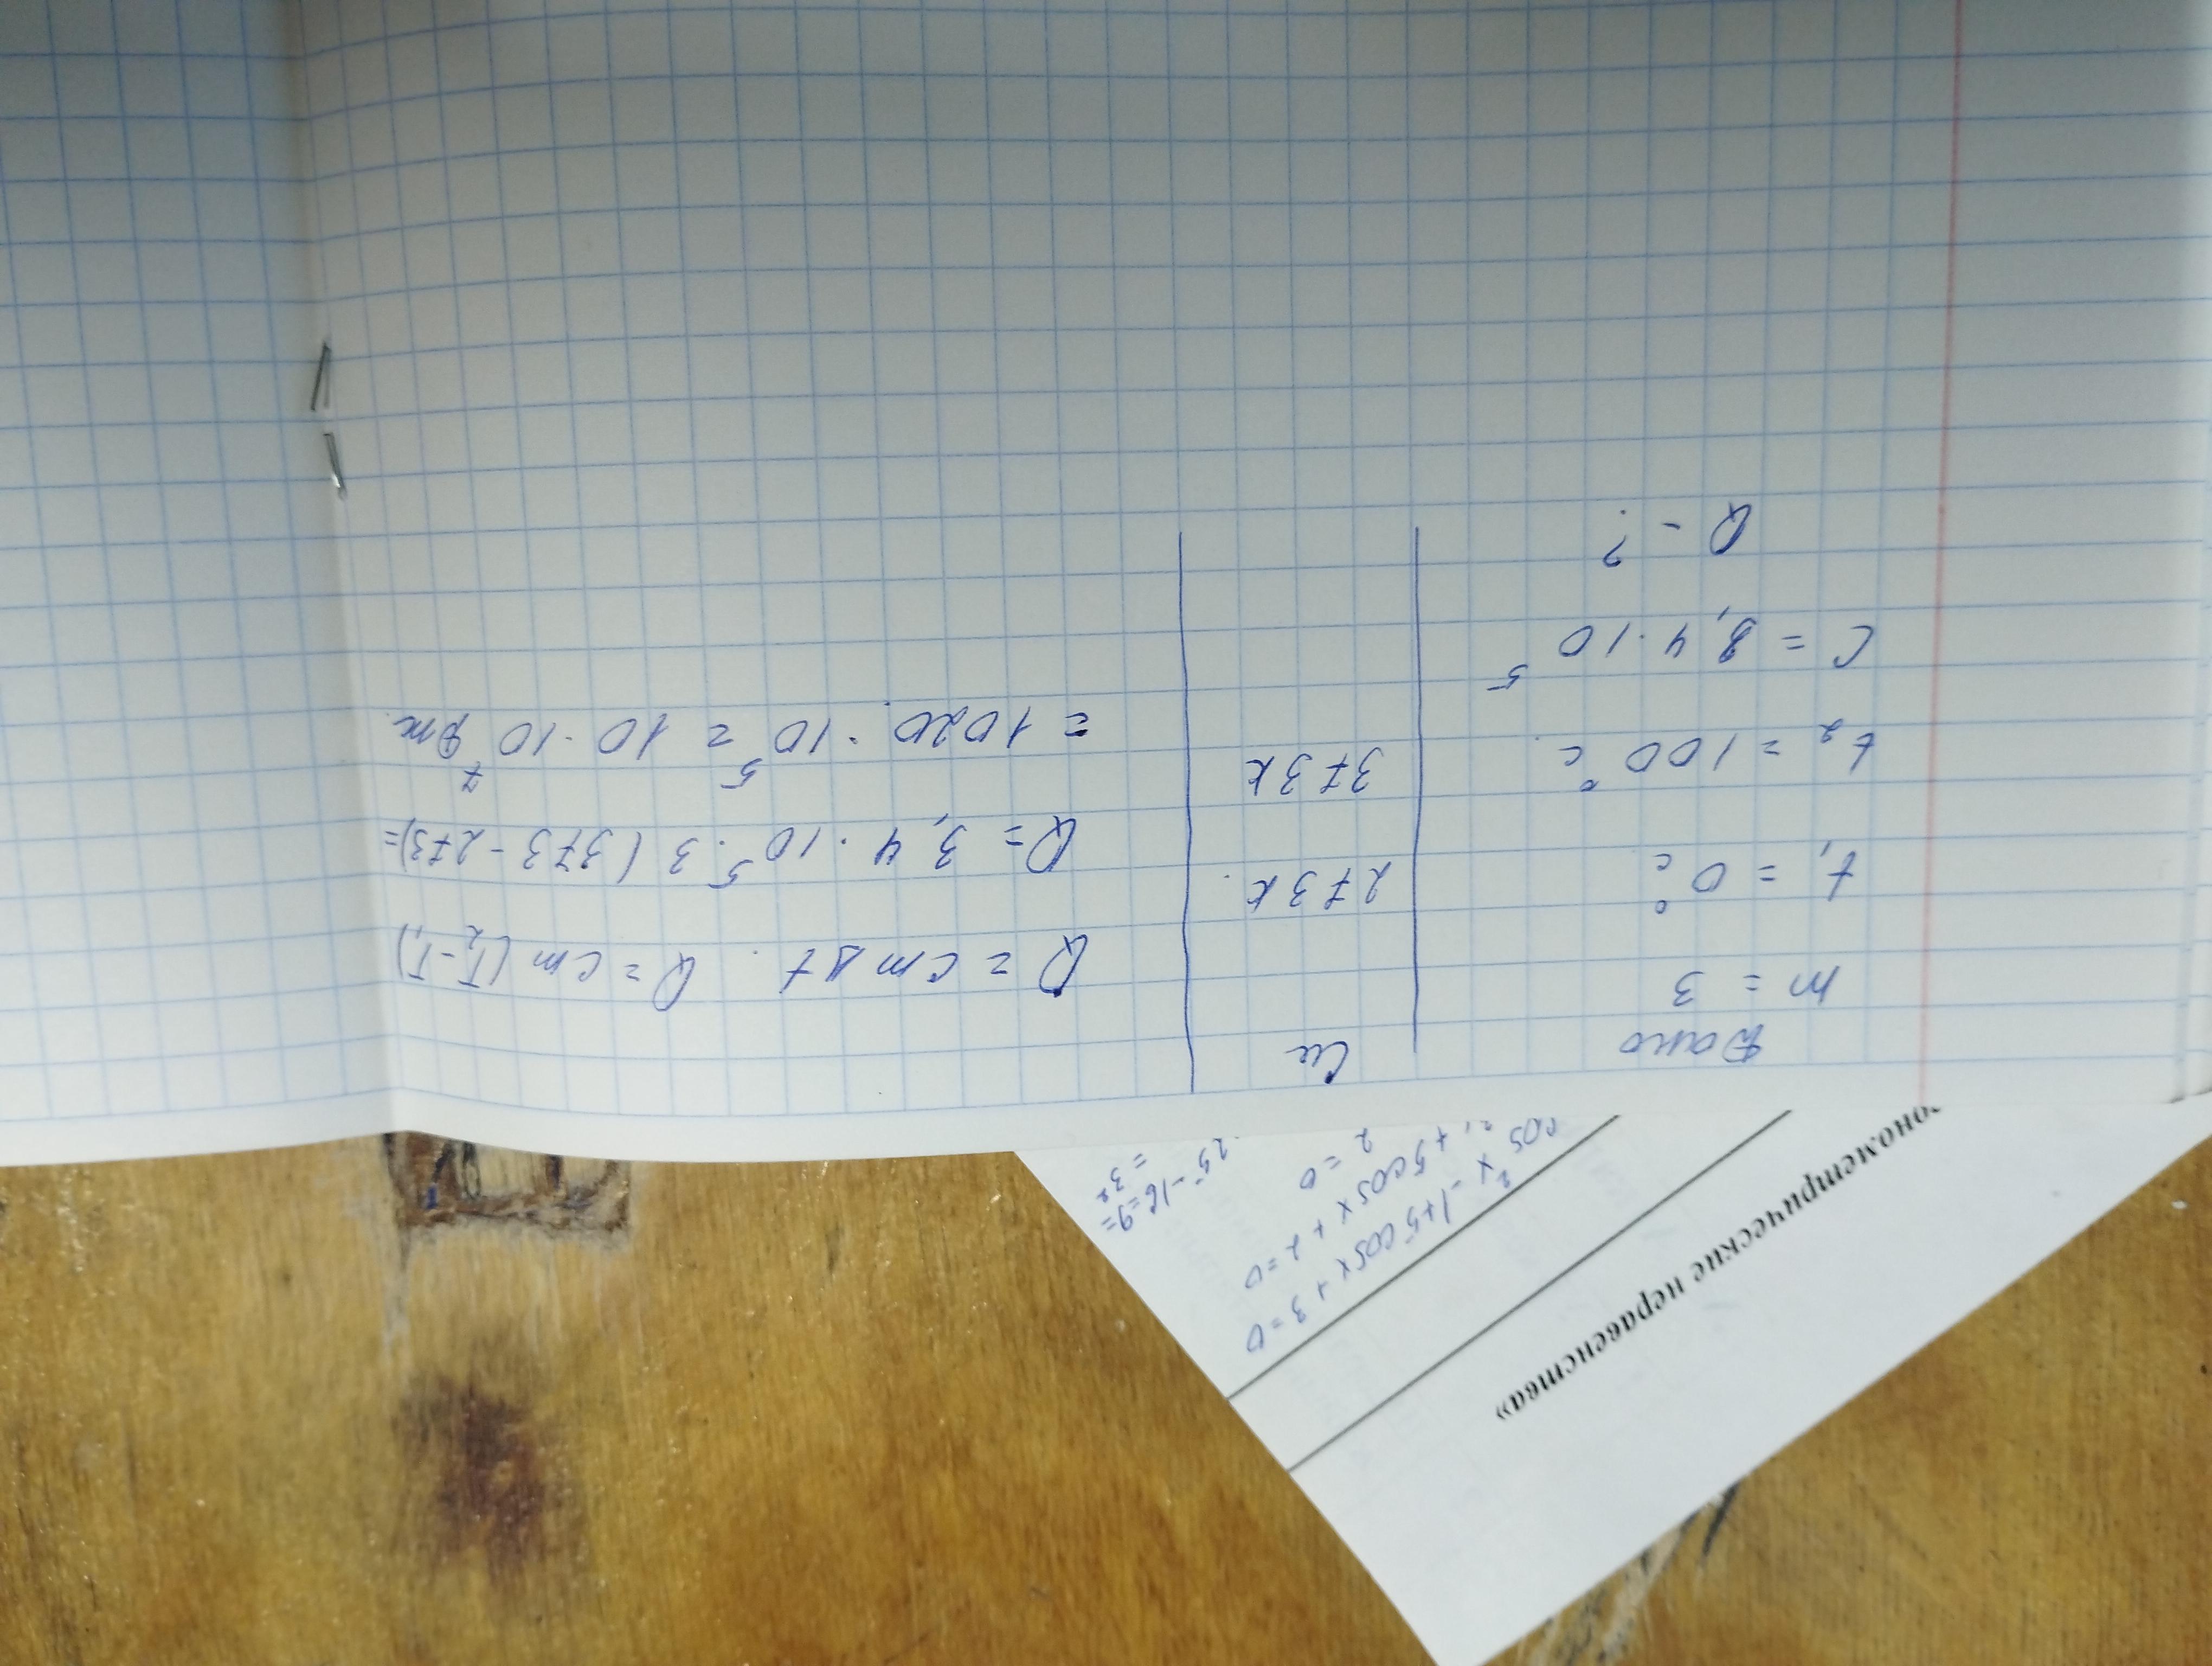 Дано
m = 3
t₁ = 0°C
t₂ = 100°C
C = 3,4·10⁵
Q - ?
Си
273 K
373 K
Q = cmΔt. Q = cm(T₂-T₁)
Q = 3,4·10⁵·3(373-273)=
= 1020·10⁵ = 10·10⁷ Дж
онометрические неравенства»
²x -1+5cosx+3=0
cos²x+5cosx+2=0
2=0
25-16=9=
=3²